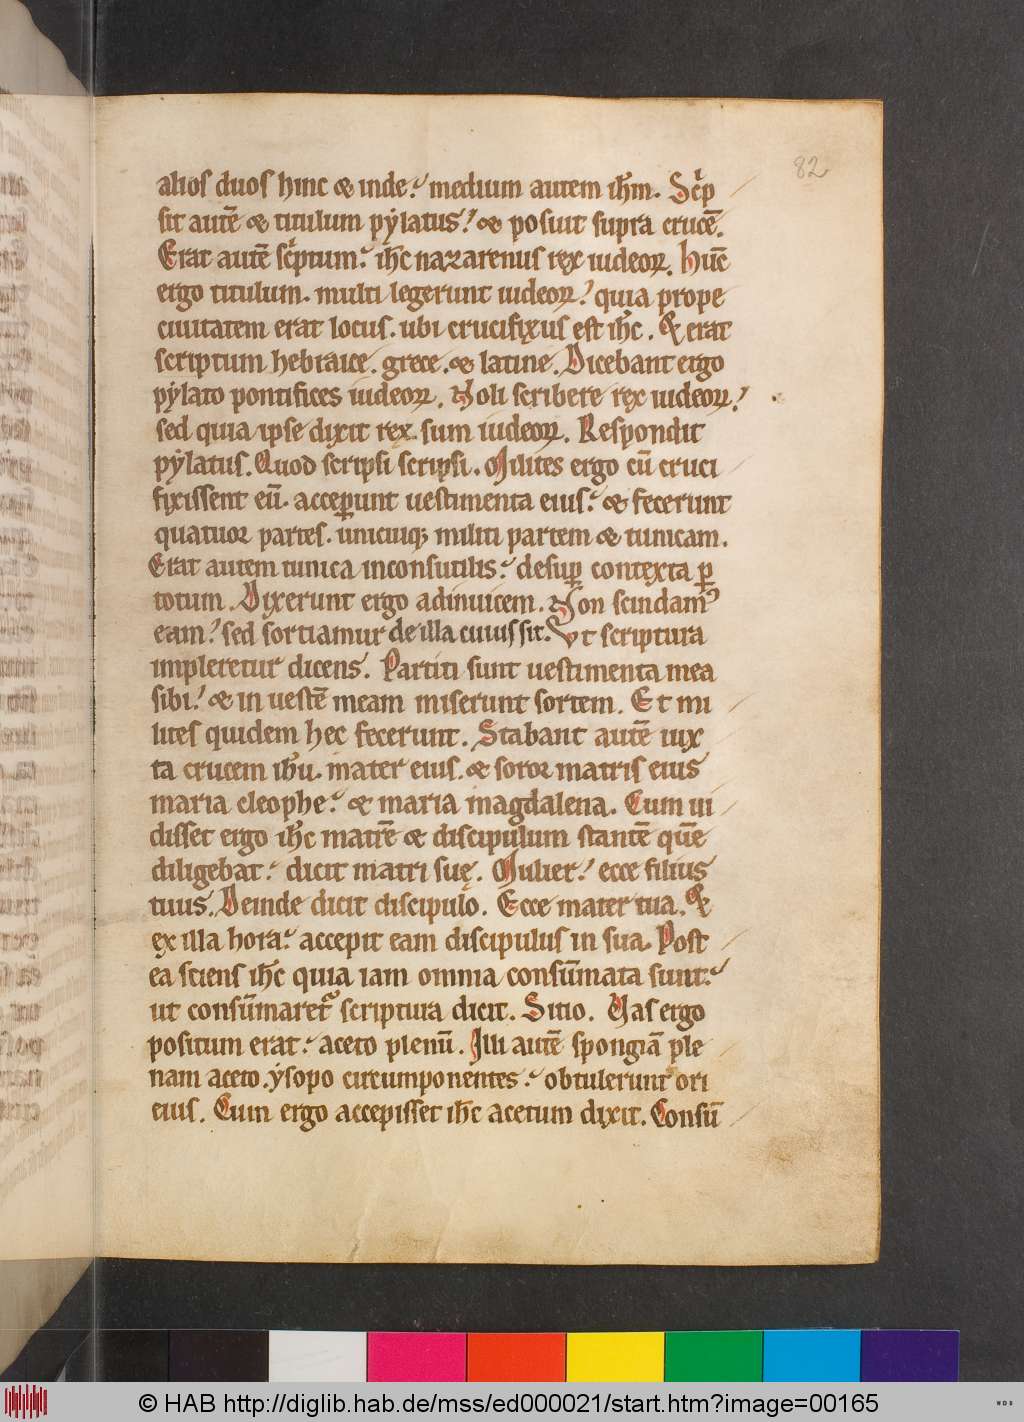 82
alios duos hinc & inde. medium autem ihm̄. Sc͛p
sit autē & titulum pẏlatus. & posuit supra crucē.
Erat autē sc͛ptum. ihc̄ nazarenus rex iudeoꝝ. Hunc
ergo titulum. multi legerunt iudeoꝝ. quia prope
ciuitatem erat locus. ubi crucifixus est ihc̄. & erat
scriptum hebraice. grece. & latine. Dicebant ergo
pẏlato pontifices iudeoꝝ. Noli scribere rex iudeoꝝ.
sed quia ipse dixit rex sum iudeoꝝ. Respondit
pẏlatus. Quod scripsi scripsi. Milites ergo cū cruci
fixissent eū. acceꝑunt uestimenta eius. & fecerunt
quatuor partes. unicuiqꝫ militi partem & tunicam.
Erat autem tunica inconsutilis. desuꝑ contexta ꝑ
totum. Dixerunt ergo adinuicem. Non scindamꝰ
eam. sed sortiamur de illa cuius sit. Vt scriptura
impleretur dicens. Partiti sunt uestimenta mea
sibi. & in uestē meam miserunt sortem. Et mi
lites quidem hec fecerunt. Stabant autē iux
ta crucem ihū. mater eius. & soror matris eius
maria cleophe. & maria magdalena. Cum ui
disset ergo ihc̄ matrē & discipulum stantē quē
diligebat. dicit matri suę. Mulier. ecce filius
tuus. Deinde dicit discipulo. Ecce mater tua. &
ex illa hora. accepit eam discipulus in sua. Post
ea sciens ihc̄ quia iam omnia consūmata sunt.
ut consūmaret᷑ scriptura dicit. Sitio. Vas ergo
positum erat. aceto plenū. Illi autē spongiā ple
nam aceto. ẏsopo circumponentes. obtulerunt ori
eius. Cum ergo accepisset ihc̄ acetum dixit. Consū
© HAB http://diglib.hab.de/mss/ed000021/start.htm?image=00165